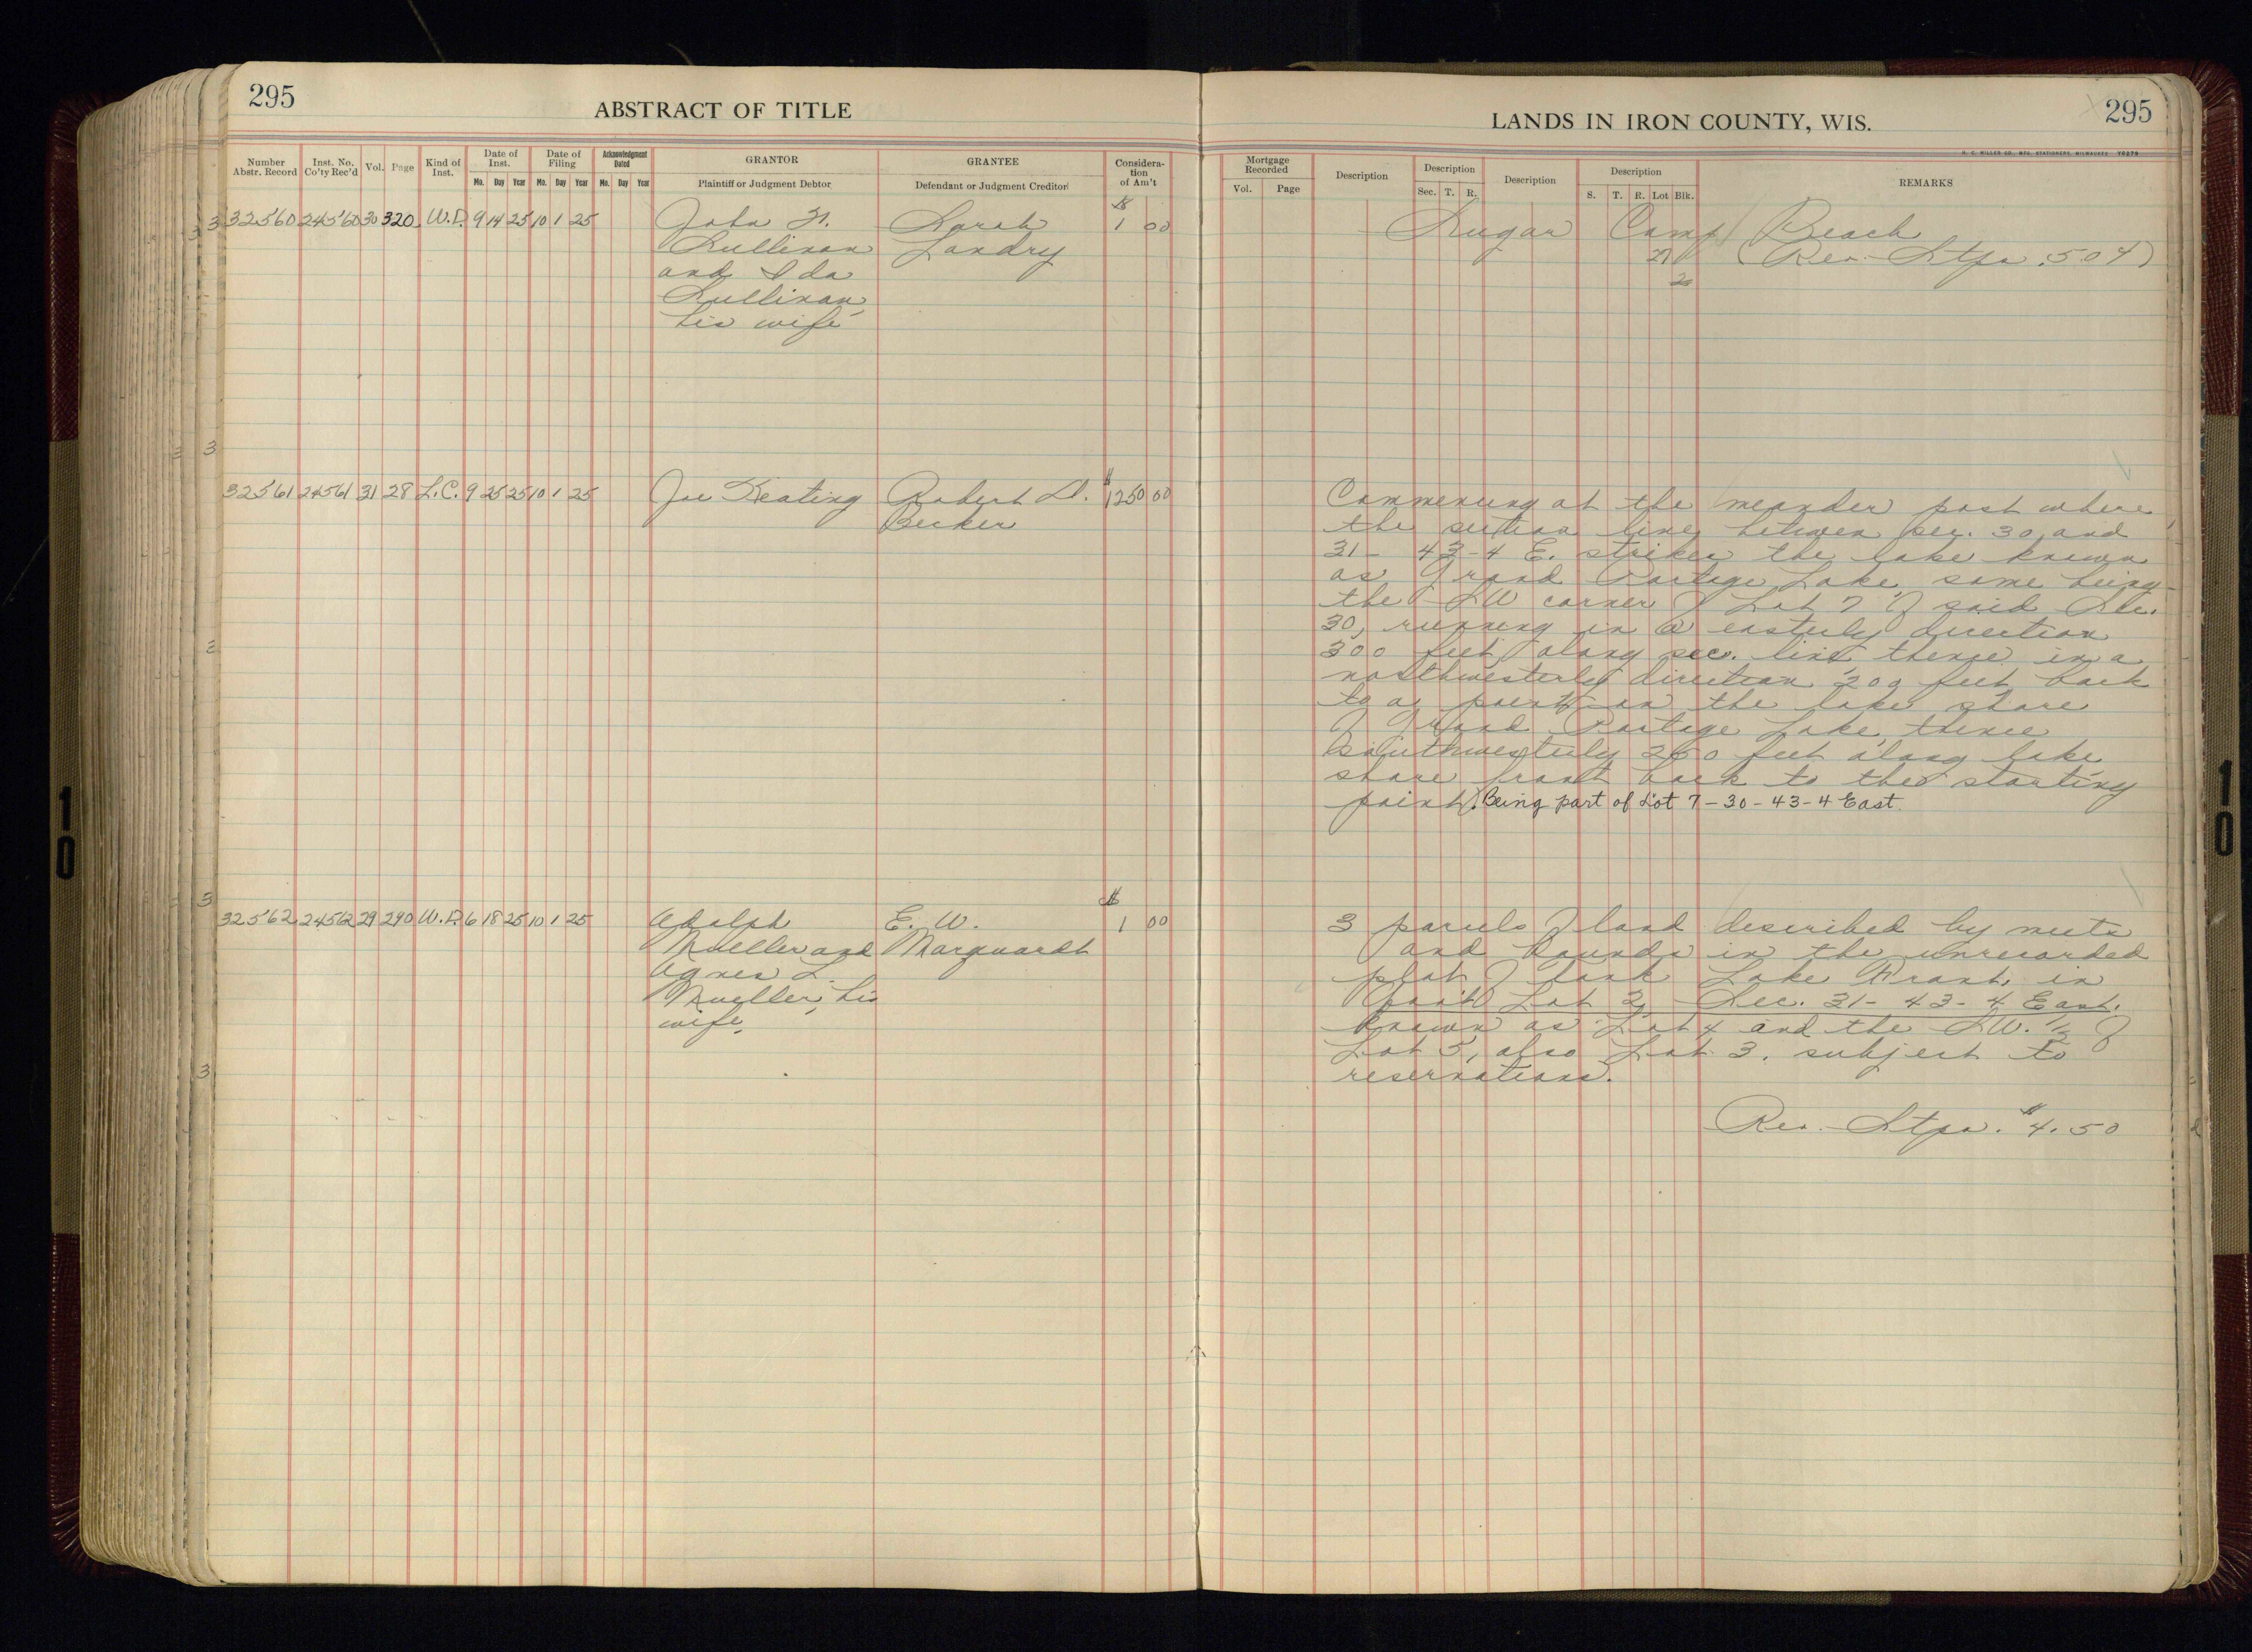 295
ABSTRACT OF TITLE
Number Abstr. Record
Inst. No. Co'ty Rec'd
Vol.
Page
Kind of Inst.
Date of Inst.
Mo. Day Year
Date of Filing
Mo. Day Year
Acknowledgment Dated
Mo. Day Year
GRANTOR
Plaintiff or Judgment Debtor
GRANTEE
Defendant or Judgment Creditor
Considera-
tion
of Am't
32560 24560 30 320 W.D. 9 14 25 10 1 25 John H. Sarah $1 00
Sullivan Landry
and Ida
Sullivan,
his wife
32561 24561 31 28 L.C. 9 25 25 10 1 25 Joe Keating Robert D. $1250 00
Becker
32562 24562 29 290 W.D. 6 18 25 10 1 25 Adolph E. W. $1 00
Mueller and Marquardt
Agnes L.
Mueller, his
wife,
LANDS IN IRON COUNTY, WIS.
295
H. C. MILLER CO., MFG. STATIONERS, MILWAUKEE
Mortgage Recorded
Vol. Page
Description
Description
Sec. T. R.
Description
Description
S. T. R. Lot Blk.
REMARKS
Sugar Camp Beach
27 (Rev. Stps .50¢)
Commencing at the meander post where
the section line between sec. 30 and
31 - 43 - 4 E. strikes the lake known
as Grand Portage Lake, same being
the SW corner of Lot 7 of said Sec.
30, running in a easterly direction
300 feet along sec. line thence in a
northwesterly direction 200 feet back
to a point on the lake shore
of Grand Portage Lake, thence
Southwesterly 250 feet along lake
shore front back to the starting
point. Being part of Lot 7 - 30 - 43 - 4 East.
3 parcels of land described by meets
and bounds in the unrecorded
plat of Lake Front, in
Gov't Lot 2, Sec. 31 - 43 - 4 East.
known as Lot 4 and the SW. 1/2 of
Lot 5, also Lot 3. subject to
reservations.
Rev. Stps. $4.50